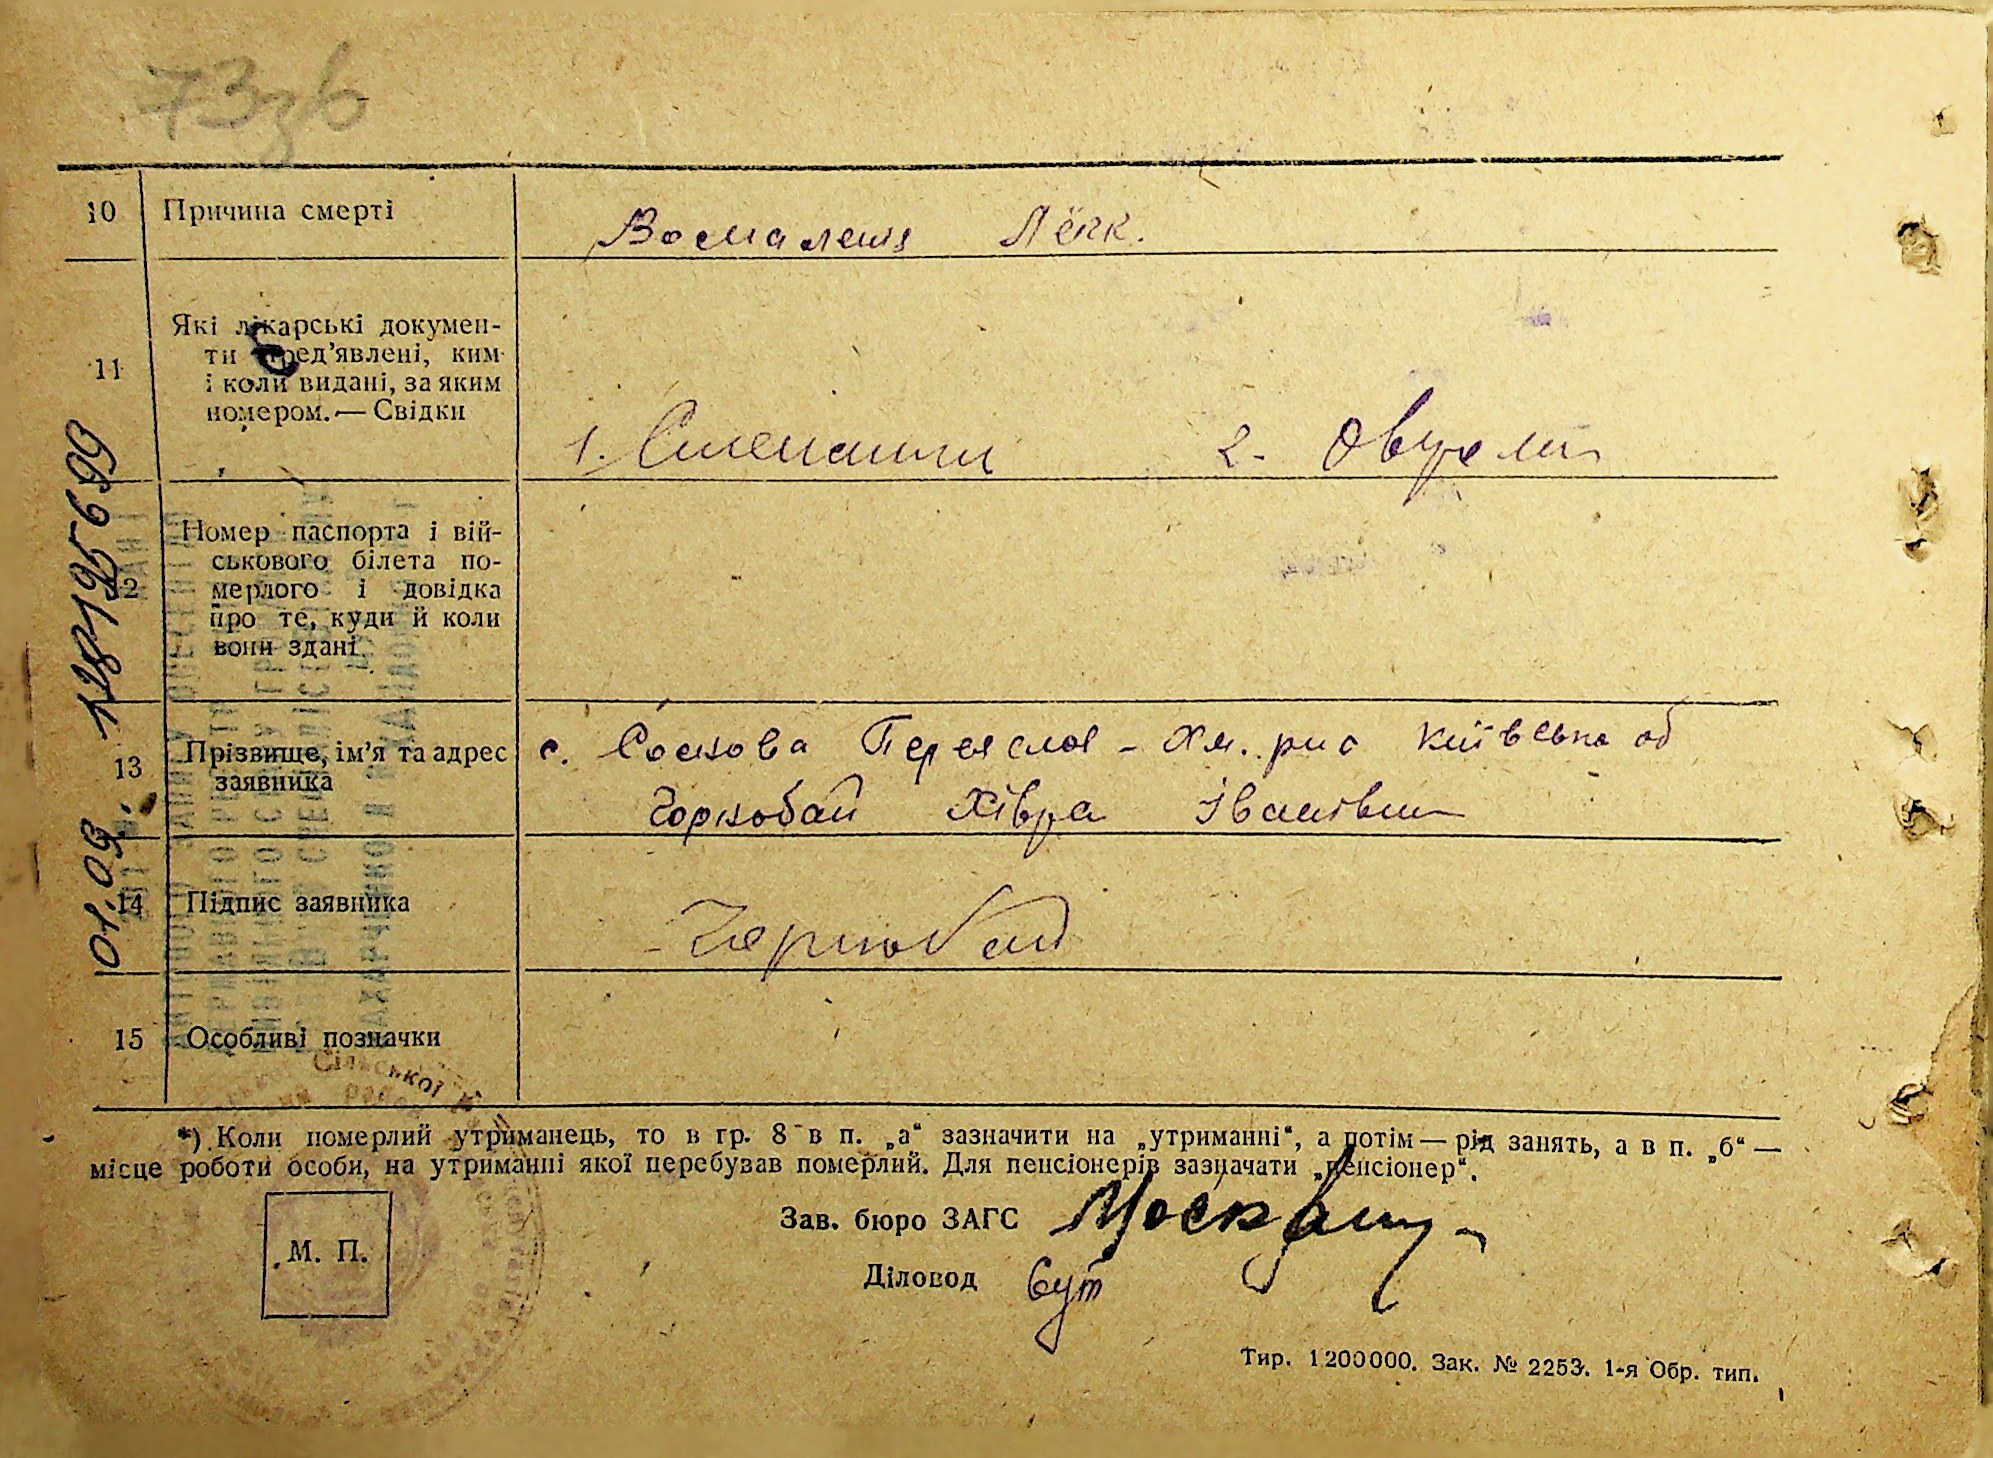 73зв
10 Причина смерті Восмаления Лёгк.
11 Які лікарські докумен-
ти пред’явлені, ким
і коли видані, за яким
номером.— Свідки
1. 2.
12 Номер паспорта і вій-
ськового білета по-
мерлого і довідка
про те, куди й коли
вони здані.
13 Прізвище, ім’я та адрес
заявника
с. Соснова Переяслов - Хм. р-на Київська об
Чорнобай Хівря Іванівна
14 Підпис заявника Чорнобай
15 Особливі позначки
Сільської
*) Коли померлий утриманець, то в гр. 8 в п. „а“ зазначити на „утриманні“, а потім — рід занять, а в п. „б“ —
місце роботи особи, на утриманні якої перебував померлий. Для пенсіонерів зазначати „пенсіонер“.
Зав. бюро ЗАГС
М. П.
Діловод
Тир. 1200000. Зак. № 2253. 1-я Обр. тип.